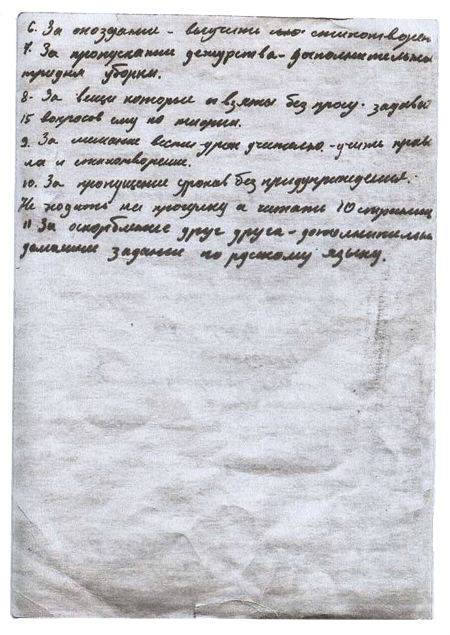 6. За опоздание - выучить стихотворен
7. За пропускание дежурства - дополнительны
три дня уборки.
8. За вещи которые взяты без просу - задават
15 вопросов ему по теории.
9. За мешание вести урок учителю - учить прави
ла и стихотворение.
10. За пропущение уроков без придупреждения -
Не ходить на прогулку а читать 10 страниц
11 За оскорбление друг друга - дополнительны
домашнее задание по русскому языку.